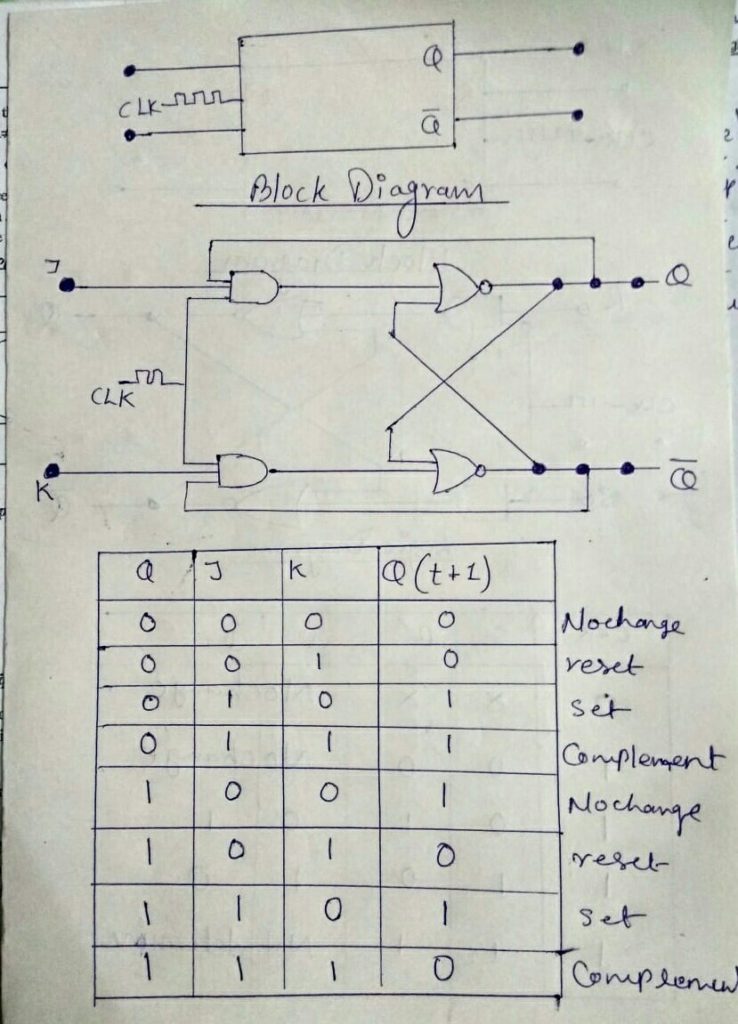 Q
CLK
Q̅
Block Diagram
J
Q
CLK
K
Q̅
Q J K Q(t+1)
0 0 0 0 Nochange
0 0 1 0 reset
0 1 0 1 Set
0 1 1 1 Complement
1 0 0 1 Nochange
1 0 1 0 reset
1 1 0 1 Set
1 1 1 0 Complemen